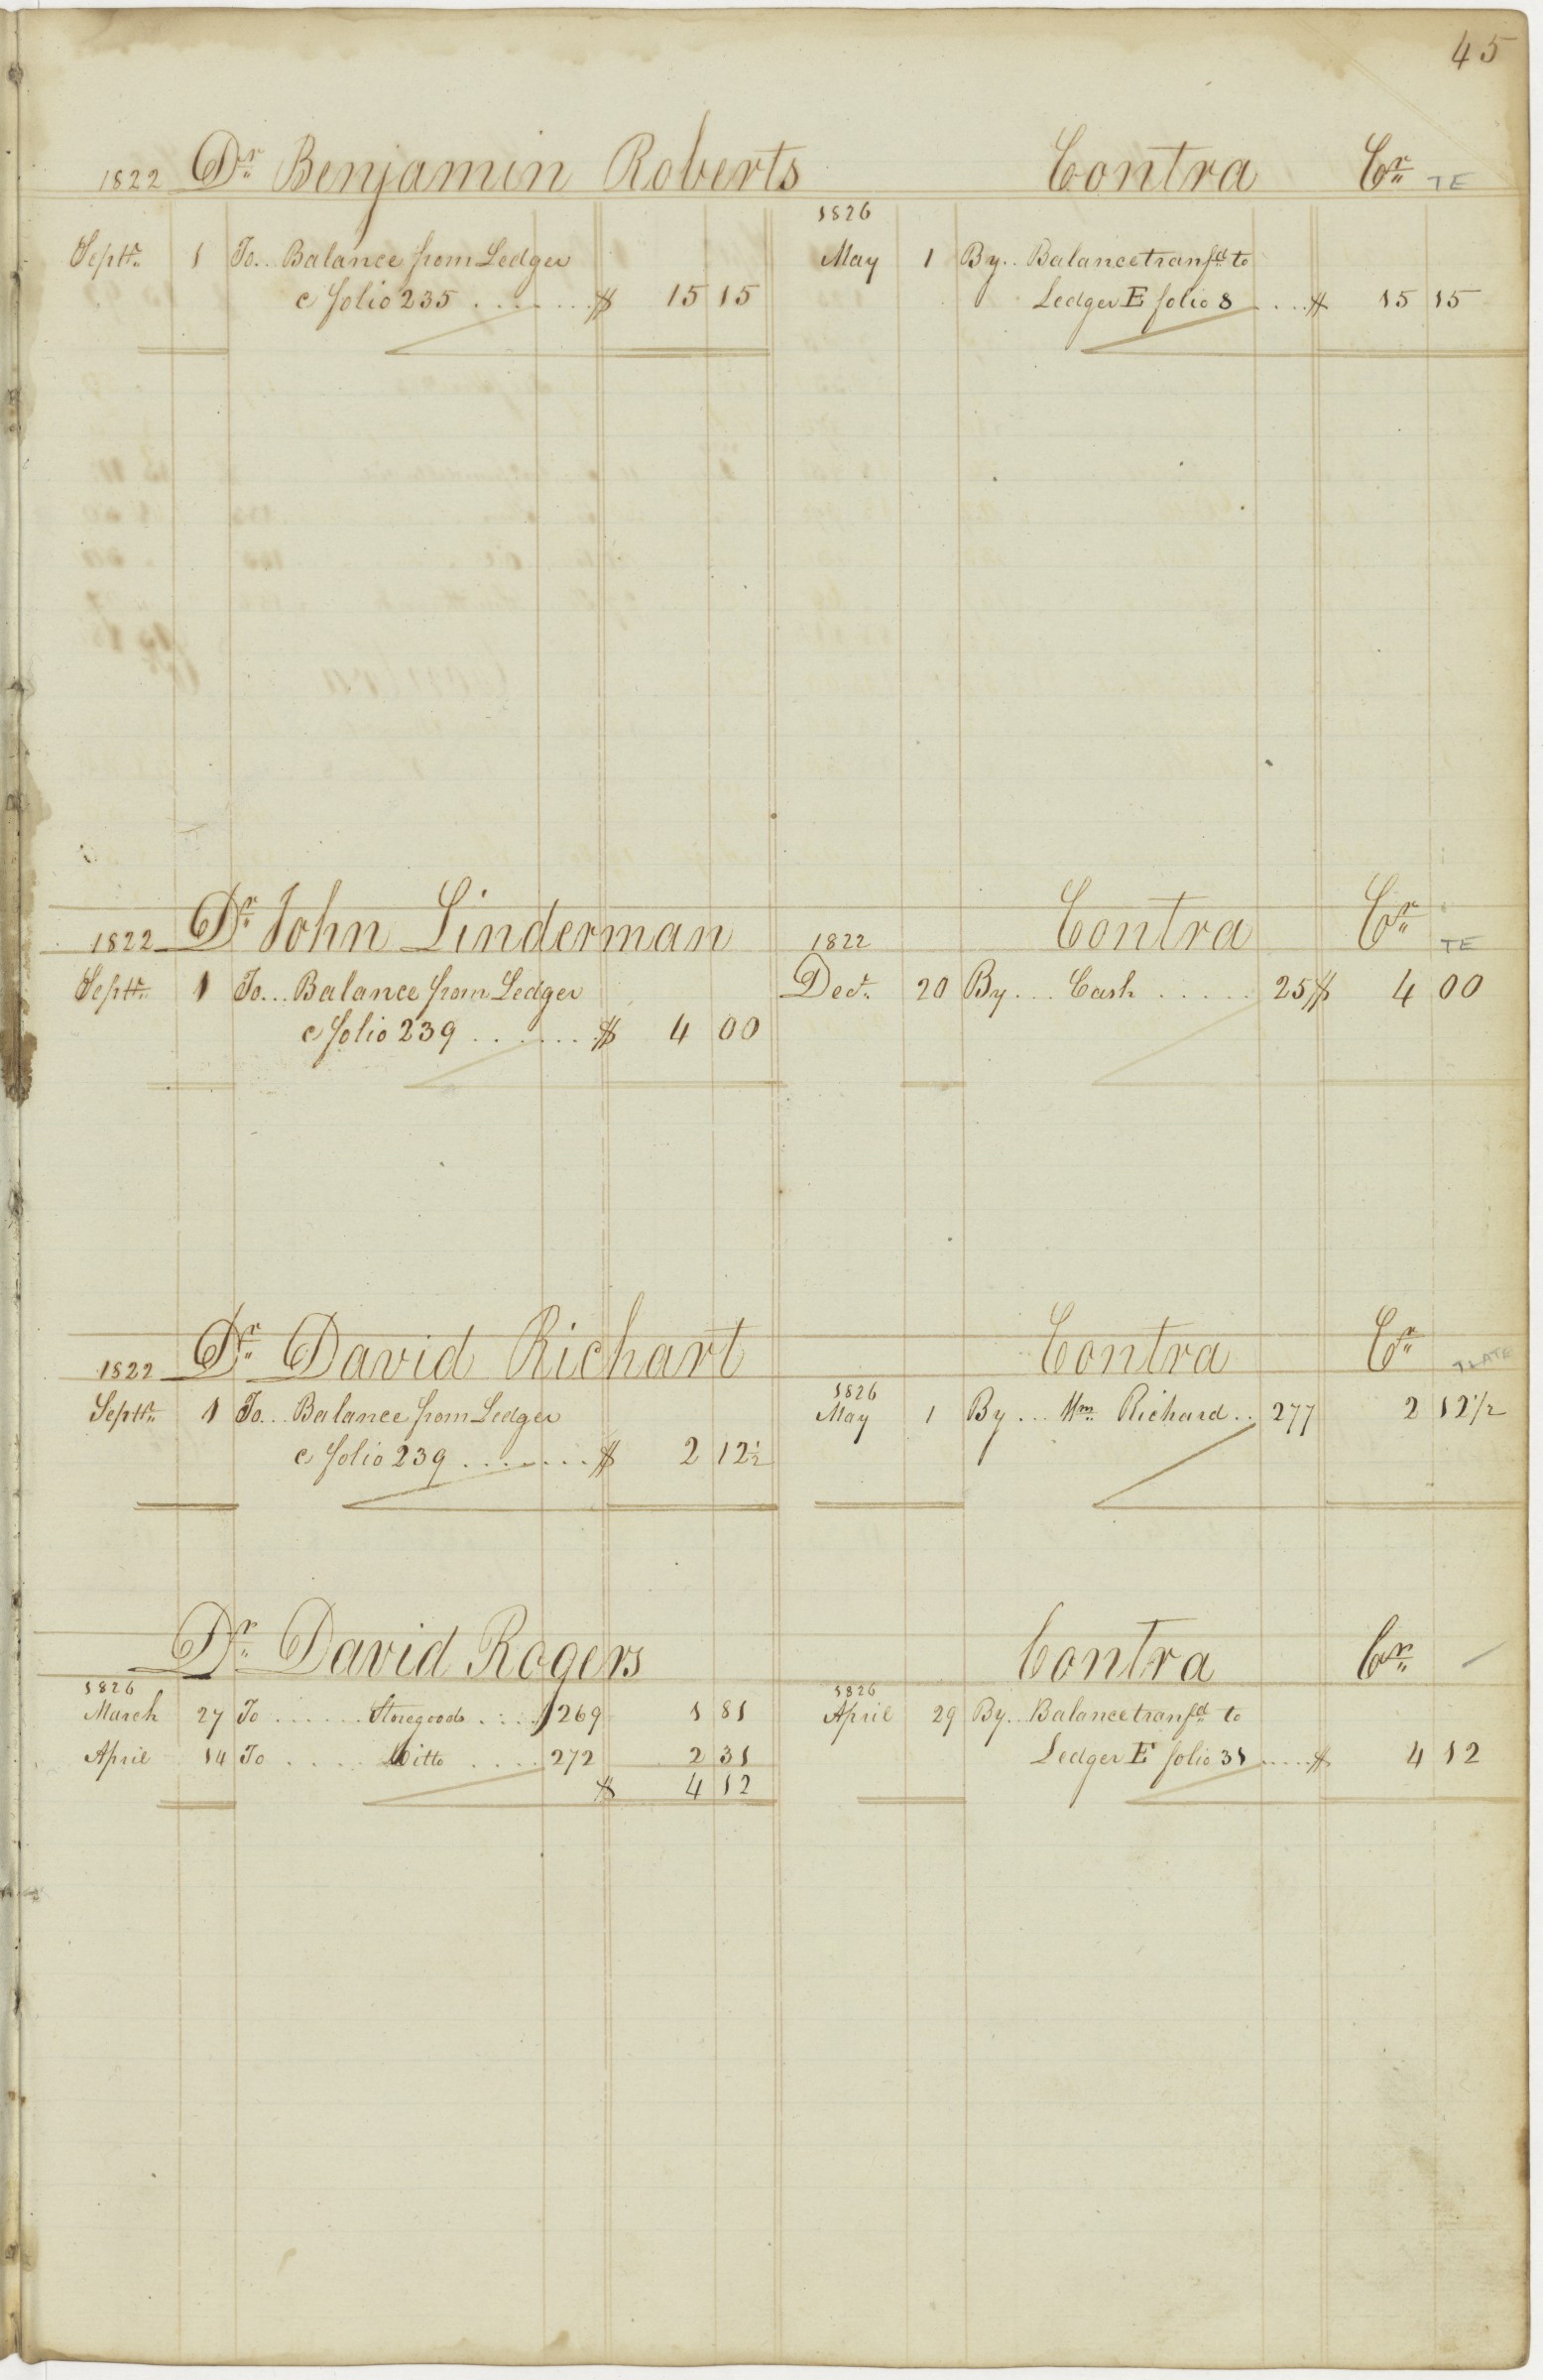 45
1822 Dr. Benjamin Roberts Contra Cr. TE
Septr. 1 To.. Balance from Ledger
c folio 235 ....... $ 15 15
1826
May 1 By.. Balance transfd. to
Ledger E folio 8 .... $ 15 15
1822 Dr. John Linderman 1822 Contra Cr. TE
Septr. 1 To... Balance from Ledger
c folio 239 ....... $ 4 00
Decr. 20 By... Cash ..... 25 $ 4 00
1822 Dr. David Richart Contra Cr.
Septr. 1 To... Balance from Ledger
c folio 239 ........ $ 2 12½
1826
May 1 By... Wm. Richard.. 277 2 12½
Dr. David Rogers Contra Cr.
1826
March 27 To ...... Storegoods ..... 269 1 81
April 14 To ..... Ditto .... 272 2 31
$ 4 12
1826
April 29 By.. Balance transfd. to
Ledger E folio 31 ..... $ 4 12